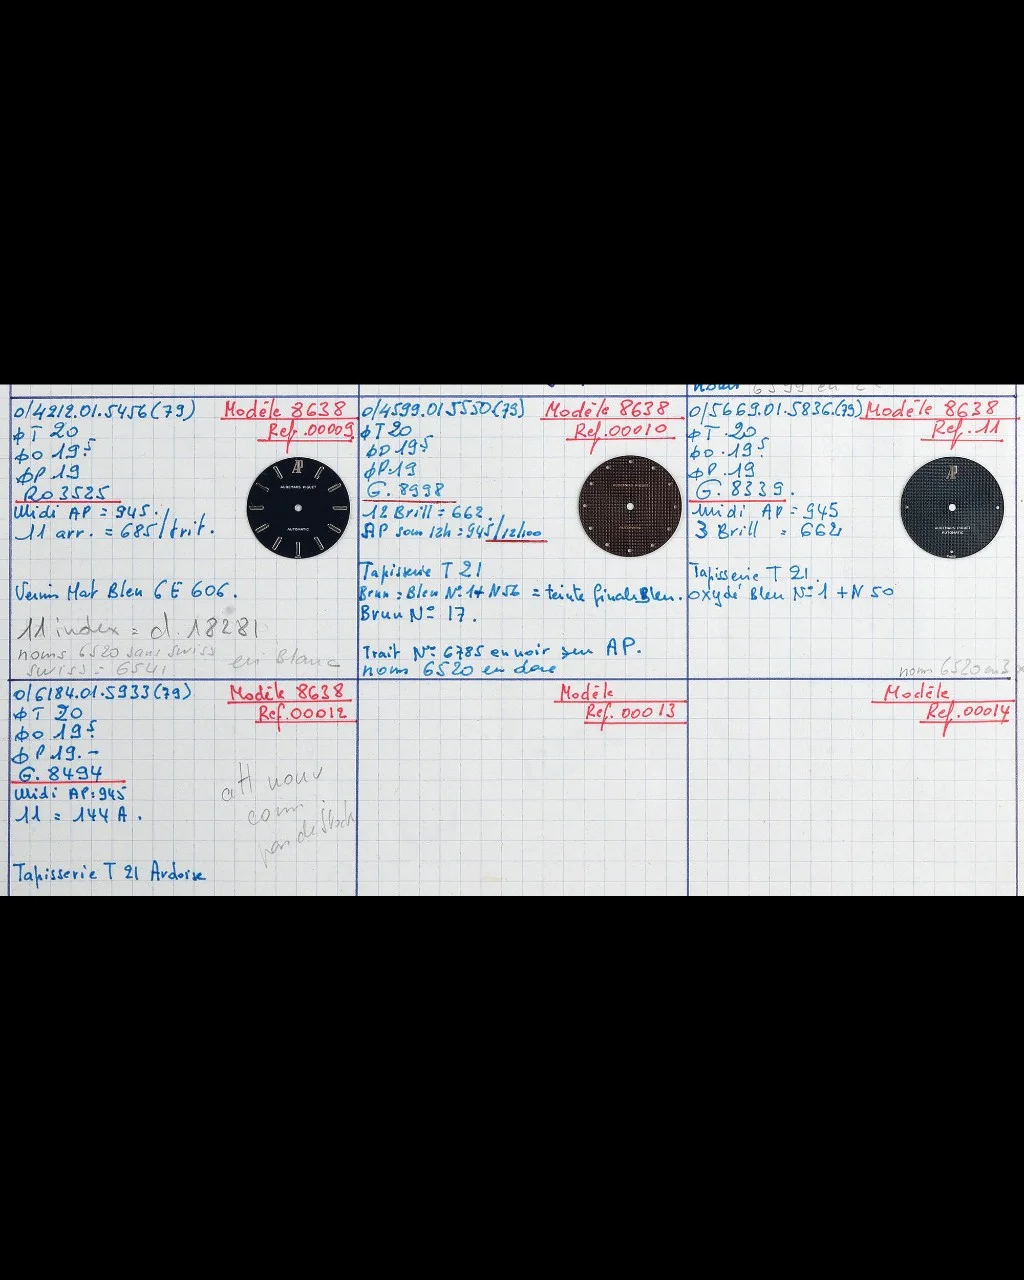 o/4212.01.5456(79) Modèle 8638
Ref.00009
ϕT 20
ϕo 19⁵
ϕP 19
Ro 3525
Midi AP = 945.
11 arr. = 685/trit.
AP
AUDEMARS PIGUET
AUTOMATIC
Vernis Mat Bleu GE 606.
11 index = d.18281
noms 6520 sans swiss
swiss = 6541 en blanc
o/4599.01.5550(79) Modèle 8638
Ref.00010
ϕT 20
ϕo 19⁵
ϕP.19
G. 8998
12 Brill = 662.
AP sous 12h = 945/12/100
Tapisserie T 21
Brun = Bleu N° 1 + N 56 = teinte finale Bleu.
Brun N° 17.
Trait N° 6785 en noir sur AP.
noms 6520 en dore
o/5669.01.5836(79) Modèle 8638
Ref.11
ϕT.20
ϕo.19⁵
ϕP.19
G. 8339.
Midi AP = 945
3 Brill = 662
AP
AUDEMARS PIGUET
AUTOMATIC
Tapisserie T 21.
oxydé Bleu N° 1 + N 50
noms 6520 en
o/6184.01.5933(79) Modèle 8638
Ref.00012
ϕT 20
ϕo 19⁵
ϕP 19.-
G. 8494
Midi AP:945
11 = 144 A.
Tapisserie T 21 Ardoise
Modèle
Ref.00013
Modèle
Ref.00014